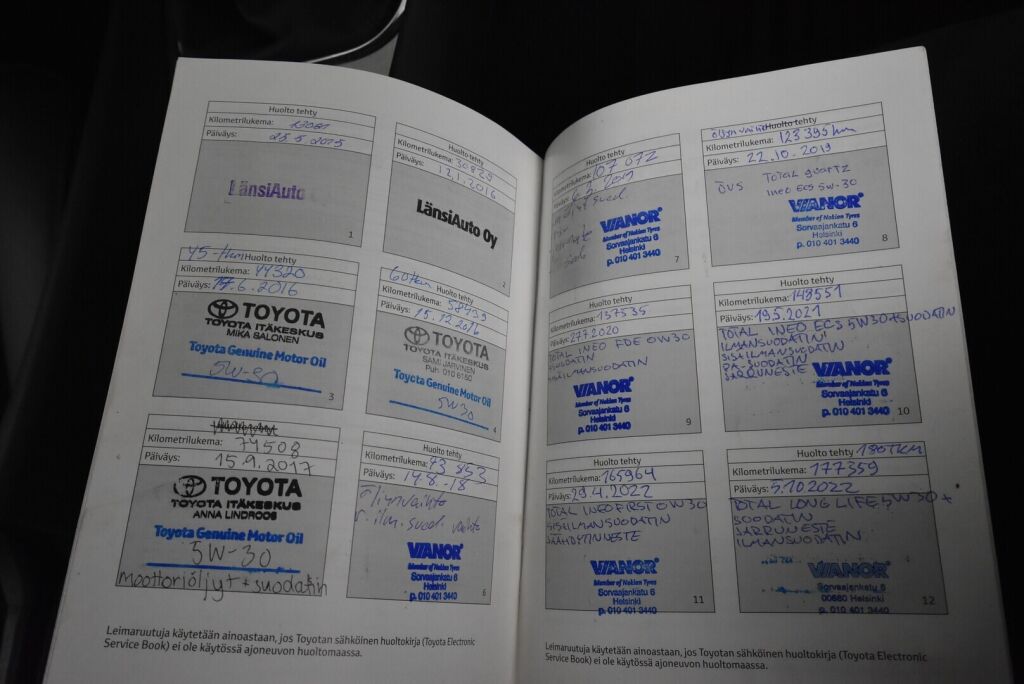 Huolto tehty
Kilometrilukema:
Päiväys: 25.5 2015
LänsiAuto
1
Huolto tehty
Kilometrilukema: 30829
Päiväys: 12.1.2016
LänsiAuto Oy
2
45-tkm Huolto tehty
Kilometrilukema: 44320
Päiväys: 14.6.2016
TOYOTA
TOYOTA ITÄKESKUS
MIKA SALONEN
Toyota Genuine Motor Oil
5W-30
3
60tkm Huolto tehty
Kilometrilukema: 58439
Päiväys: 15.12.2016
TOYOTA
TOYOTA ITÄKESKUS
SAMI JÄRVINEN
Puh. 010 6150
Toyota Genuine Motor Oil
5W30
4
Kilometrilukema: 74508
Päiväys: 15.9.2017
TOYOTA
TOYOTA ITÄKESKUS
ANNA LINDROOS
Toyota Genuine Motor Oil
5W-30
moottoriöljyt + suodatin
Huolto tehty
Kilometrilukema: 93 853
Päiväys: 14.8.-18
Öljynvaihto
r. ilm. suod. vaihto
VIANOR
Member of Nokian Tyres
Sorvaajankatu 6
Helsinki
p. 010 401 3440
6
Leimaruutuja käytetään ainoastaan, jos Toyotan sähköinen huoltokirja (Toyota Electronic
Service Book) ei ole käytössä ajoneuvon huoltomaassa.
Huolto tehty
Kilometrilukema: 107 072
Päiväys: 2019
suod.
VIANOR
Member of Nokian Tyres
Sorvaajankatu 6
Helsinki
p. 010 401 3440
7
öljyn vaihto Huolto tehty
Kilometrilukema: 123 395 km
Päiväys: 22.10.2019
ÖVS TOTAL QUARTZ
INEO ECS 5W-30
VIANOR
Member of Nokian Tyres
Sorvaajankatu 6
Helsinki
p. 010 401 3440
8
Huolto tehty
Kilometrilukema: 137535
Päiväys: 27.7.2020
TOTAL INEO FDE 0W30
SUODATIN
SISÄILMANSUODATIN
VIANOR
Member of Nokian Tyres
Sorvaajankatu 6
Helsinki
p. 010 401 3440
9
Huolto tehty
Kilometrilukema: 148551
Päiväys: 19.5.2021
TOTAL INEO ECS 5W30+SUODATIN
ILMANSUODATIN
SISÄILMANSUODATIN
PA-SUODATIN
JARRUNESTE
VIANOR
Member of Nokian Tyres
Sorvaajankatu 6
Helsinki
p. 010 401 3440
10
Huolto tehty
Kilometrilukema: 165964
Päiväys: 29.4.2022
TOTAL INEO FIRST 0W30
SISÄILMANSUODATIN
JÄÄHDYTINNESTE
VIANOR
Member of Nokian Tyres
Sorvaajankatu 6
Helsinki
p. 010 401 3440
11
Huolto tehty 180TKM
Kilometrilukema: 177359
Päiväys: 5.10.2022
TOTAL LONG LIFE 5W30 +
SUODATIN
JARRUNESTE
ILMANSUODATIN
VIANOR
Sorvaajankatu 6
00880 Helsinki
p. 010 401 3440
12
Leimaruutuja käytetään ainoastaan, jos Toyotan sähköinen huoltokirja (Toyota Electronic
Service Book) ei ole käytössä ajoneuvon huoltomaassa.